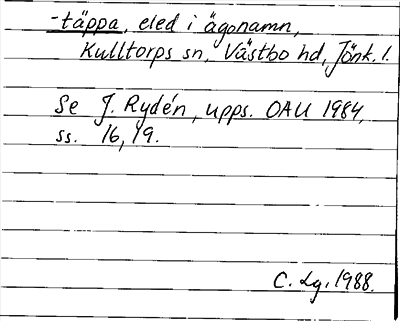 -täppa, eled i ägonamn,
Kulltorps sn, Västbo hd, Jönk. l.
Se J. Rydén, upps. OAU 1984,
ss. 16, 19.
C. Lg. 1988.